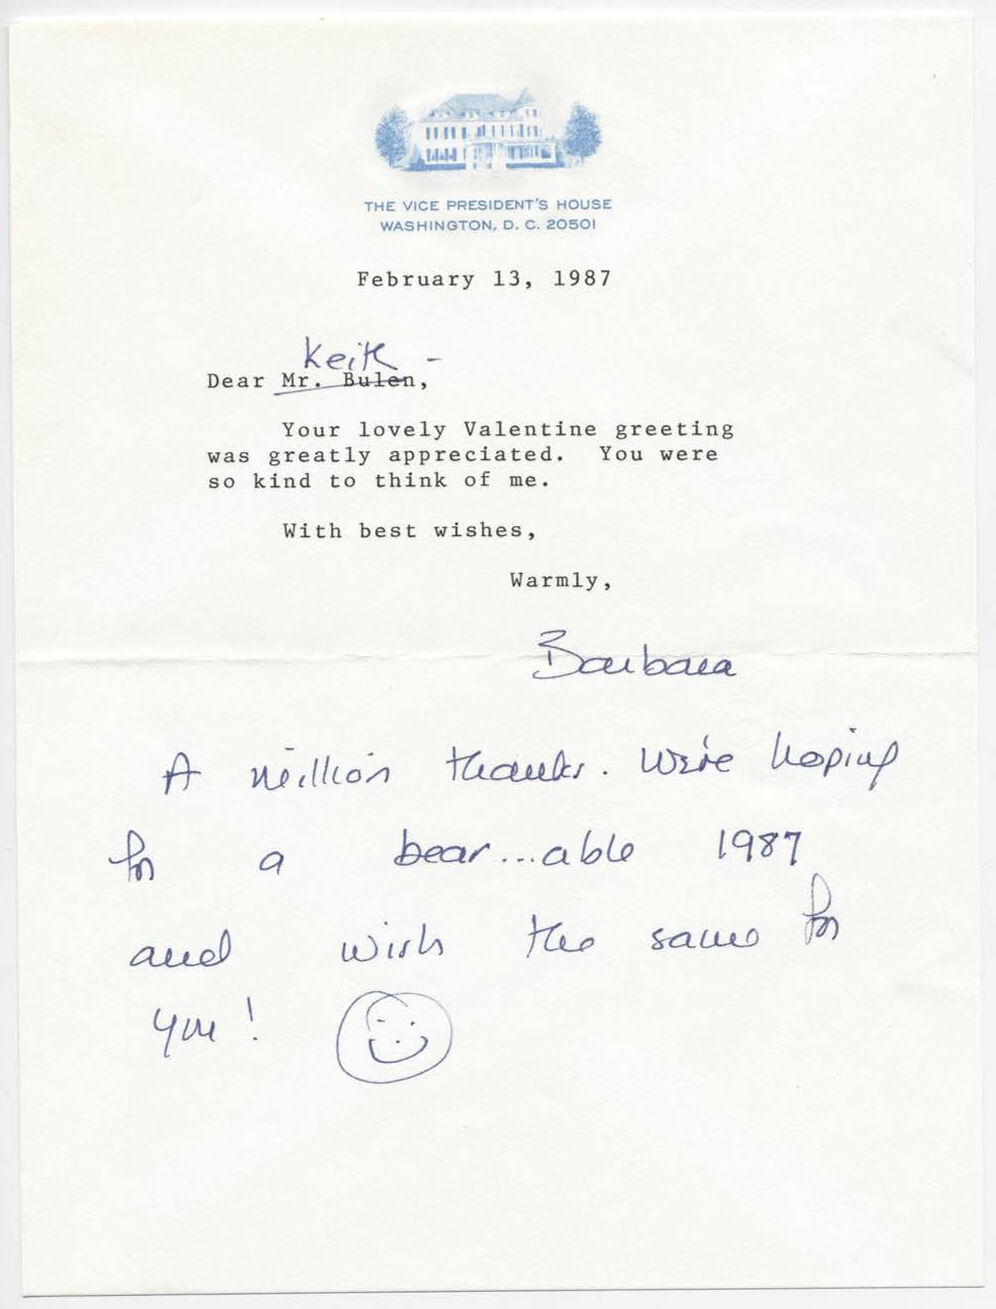 THE VICE PRESIDENT'S HOUSE
WASHINGTON, D. C. 20501
February 13, 1987
Keith -
Dear Mr. Bulen,
Your lovely Valentine greeting
was greatly appreciated. You were
so kind to think of me.
With best wishes,
Warmly,
Barbara
A million thanks. We're hoping
for a bear...able 1987
and wish the same for
you!